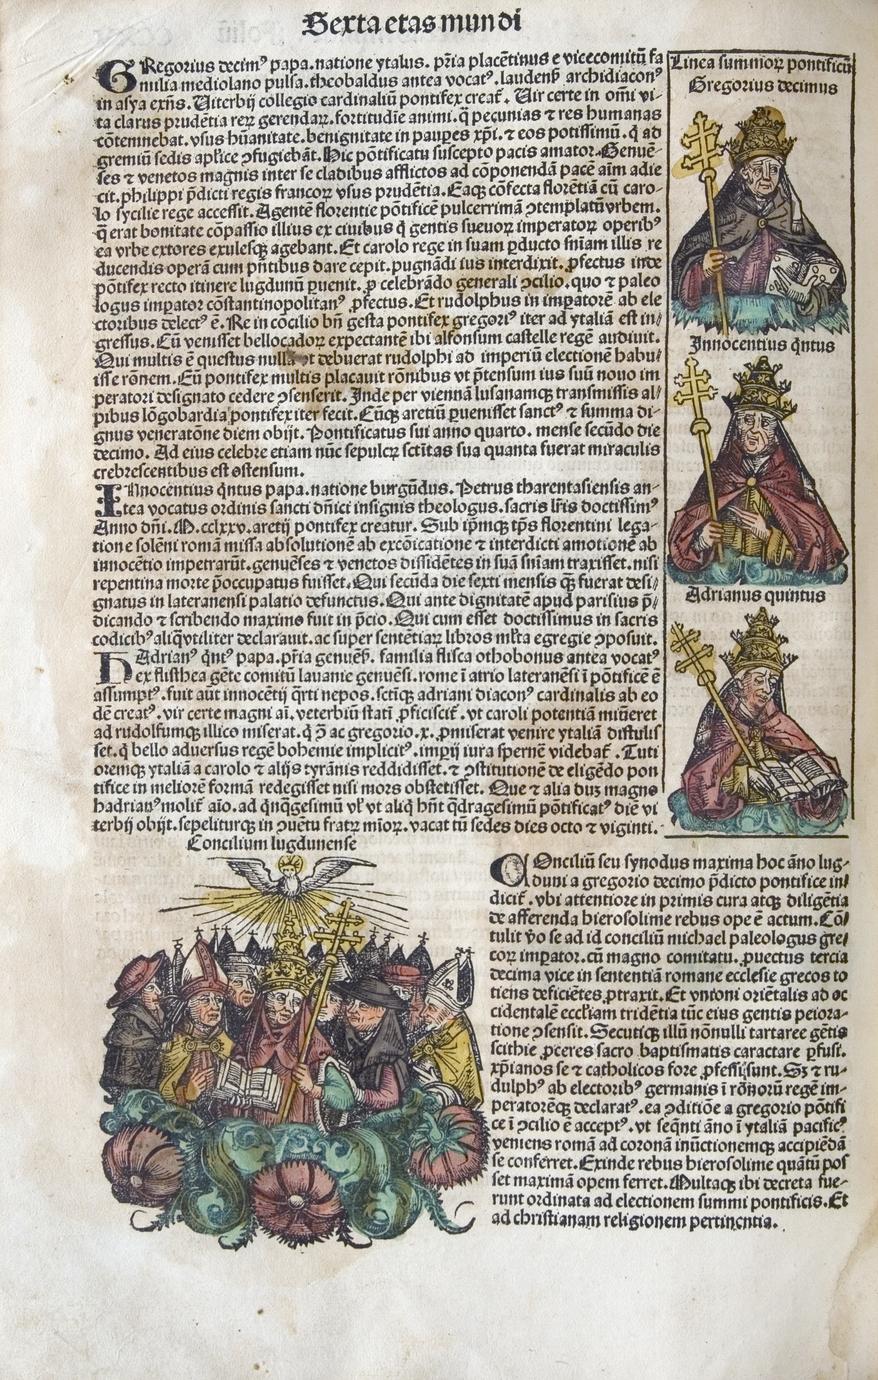 Sexta etas mundi
GRegorius decimꝰ papa. natione ytalus. pr̄ia placētinus e vicecomitū fa
milia mediolano pulsa. theobaldus antea vocatꝰ. laudenß archidiaconꝰ
in asya exn̄s. Uiterbij collegio cardinaliū pontifex creat̄. Uir certe in om̄i vi-
ta clarus prudētia reꝝ gerendaꝝ. fortitudīe animi. q̄ pecunias ⁊ res humanas
cōtemnebat. vsus hūanitate. benignitate in paupes xp̄i. ⁊ eos potissimū. q̄ ad
gremiū sedis apl̄ice ꝯfugiebāt. Hic pōtificatu suscepto pacis amator. Genuē-
ses ⁊ venetos magnis inter se cladibus afflictos ad cōponendā pacē aīm adie
cit. philippi p̄dicti regis francoꝝ vsus prudētia. Eaqꝫ cōfecta florētiā cū caro-
lo sycilie rege accessit. Agentē florentie pōtificē pulcerrimā ꝯtemplatū vrbem.
q̄ erat bonitate cōpassio illius ex ciuibus q̄ gentis sueuoꝝ imperatoꝝ operibꝰ
ea vrbe extores exulesqꝫ agebant. Et carolo rege in suam ꝑducto sn̄iam illis re
ducendis operā cum pn̄tibus dare cepit. pugnādi ius interdixit. ꝓfectus inde
pōtifex recto itinere lugdunū ꝑuenit. ꝓ celebrādo generali ꝯcilio. quo ⁊ paleo
logus imꝑator cōstantinopolitanꝰ ꝓfectus. Et rudolphus in imꝑatorē ab ele
ctoribus delectꝰ ē. Re in cōcilio bn̄ gesta pontifex gregoriꝰ iter ad ytaliā est in/
gressus. Cū venisset bellocadoꝝ expectantē ibi alfonsum castelle regē audiuit.
Qui multis ē questus nullā vt debuerat rudolphi ad imperiū electionē habu/
isse rōnem. Eū pontifex multis placauit rōnibus vt p̄tensum ius suū nouo im
peratori designato cedere ꝯsenserit. Inde per viennā lusanamqꝫ transmissis al/
pibus lōgobardia pontifex iter fecit. Cūqꝫ aretiū ꝑuenisset sanctꝰ ⁊ summa di-
gnus veneratōne diem obijt. Pontificatus sui anno quarto. mense secūdo die
decimo. Ad eius celebre etiam nūc sepulcꝝ sctītas sua quanta fuerat miraculis
crebrescentibus est ostensum.
INnocentius q̄ntus papa. natione burgūdus. Petrus tharentasiensis an-
tea vocatus ordinis sancti dn̄ici insignis theologus. sacris lr̄is doctissimꝰ
Anno dn̄i. M.cclxxv. aretij pontifex creatur. Sub ip̄mqꝫ tp̄s florentini lega-
tione solēni romā missa absolutionē ab excōicatione ⁊ interdicti amotionē ab
innocētio impetrarūt. genuēses ⁊ venetos dissidētes in suā sn̄iam traxisset. nisi
repentina morte p̄occupatus fuisset. Qui secūda die sexti mensis qꝫ fuerat desi/
gnatus in lateranensi palatio defunctus. Qui ante dignitatē apud parisius p̄/
dicando ⁊ scribendo maximo fuit in p̄cio. Qui cum esset doctissimus in sacris
codicibꝰ aliq̄ vtiliter declarauit. ac super sentētiaꝝ libros ml̄ta egregie ꝯposuit.
HAdrianꝰ q̄ntꝰ papa. pr̄ia genuēß. familia flisca othobonus antea vocatꝰ
ex flisthea gēte comitū lauanie genuēsi. rome ī atrio lateranēsi ī pōtificē ē
assumptꝰ. fuit aūt innocētij q̄rti nepos. sctīqꝫ adriani diaconꝰ cardinalis ab eo
dē creatꝰ. vir certe magni aī. veterbiū statī ꝓficiscit̄. vt caroli potentiā mīueret
ad rudolfumqꝫ illico miserat. q̄ ꝙ̄ ac gregorio.x. ꝓmiserat venire ytaliā distulis
set. q̄ bello aduersus regē bohemie implicitꝰ. imꝑij iura spernē videbat̄. Tuti
oremqꝫ ytaliā a carolo ⁊ alijs tyrānis reddidisset. ⁊ ꝯstitutionē de eligēdo pon
tifice in meliorē formā redegisset nisi mors obstetisset. Que ⁊ alia duꝫ magno
hadrianꝰ molit̄ aīo. ad qn̄qgesimū vl̓ vt aliq̄ hn̄t q̄dragesimū pōtificatꝰ diē vi
terbij obijt. sepeliturqꝫ in ꝯuētu fratꝝ mīoꝝ. vacat tū sedes dies octo ⁊ viginti.
Linea summoꝝ pontificū
Gregorius decimus
Innocentius q̄ntus
Adrianus quintus
Concilium lugdunense
COnciliū seu synodus maxima hoc āno lug-
duni a gregorio decimo p̄dicto pontifice in/
dicit̄. vbi attentiore in primis cura atqꝫ diligētia
de afferenda hierosolime rebus ope ē actum. Cō/
tulit ṽo se ad id conciliū michael paleologus gre/
coꝝ imꝑator. cū magno comitatu. ꝓuectus tercia
decima vice in sententiā romane ecclesie grecos to
tiens deficiētes ꝑtraxit. Et vnioni oriētalis ad oc
cidentalē eccl̄iam tridētia tūc eius gentis peiora-
tione ꝯsensit. Secutiqꝫ illū nōnulli tartaree gētis
scithie ꝓceres sacro baptismatis caractare ꝑfusi.
xp̄ianos se ⁊ catholicos fore ꝓfessi sunt. Sꝫ ⁊ ru-
dulphꝰ ab electoribꝰ germanis ī rōnorū regē im-
peratorēqꝫ declaratꝰ. ea ꝯditiōe a gregorio pōtifi
ce ī ꝯcilio ē acceptꝰ. vt seq̄nti āno ī ytaliā pacificꝰ
veniens romā ad coronā inūctionemqꝫ accipiēdā
se conferret. Exinde rebus hierosolime quātū pos
set maximā opem ferret. Multaqꝫ ibi decreta fue-
runt ordinata ad electionem summi pontificis. Et
ad christianam religionem pertinentia.